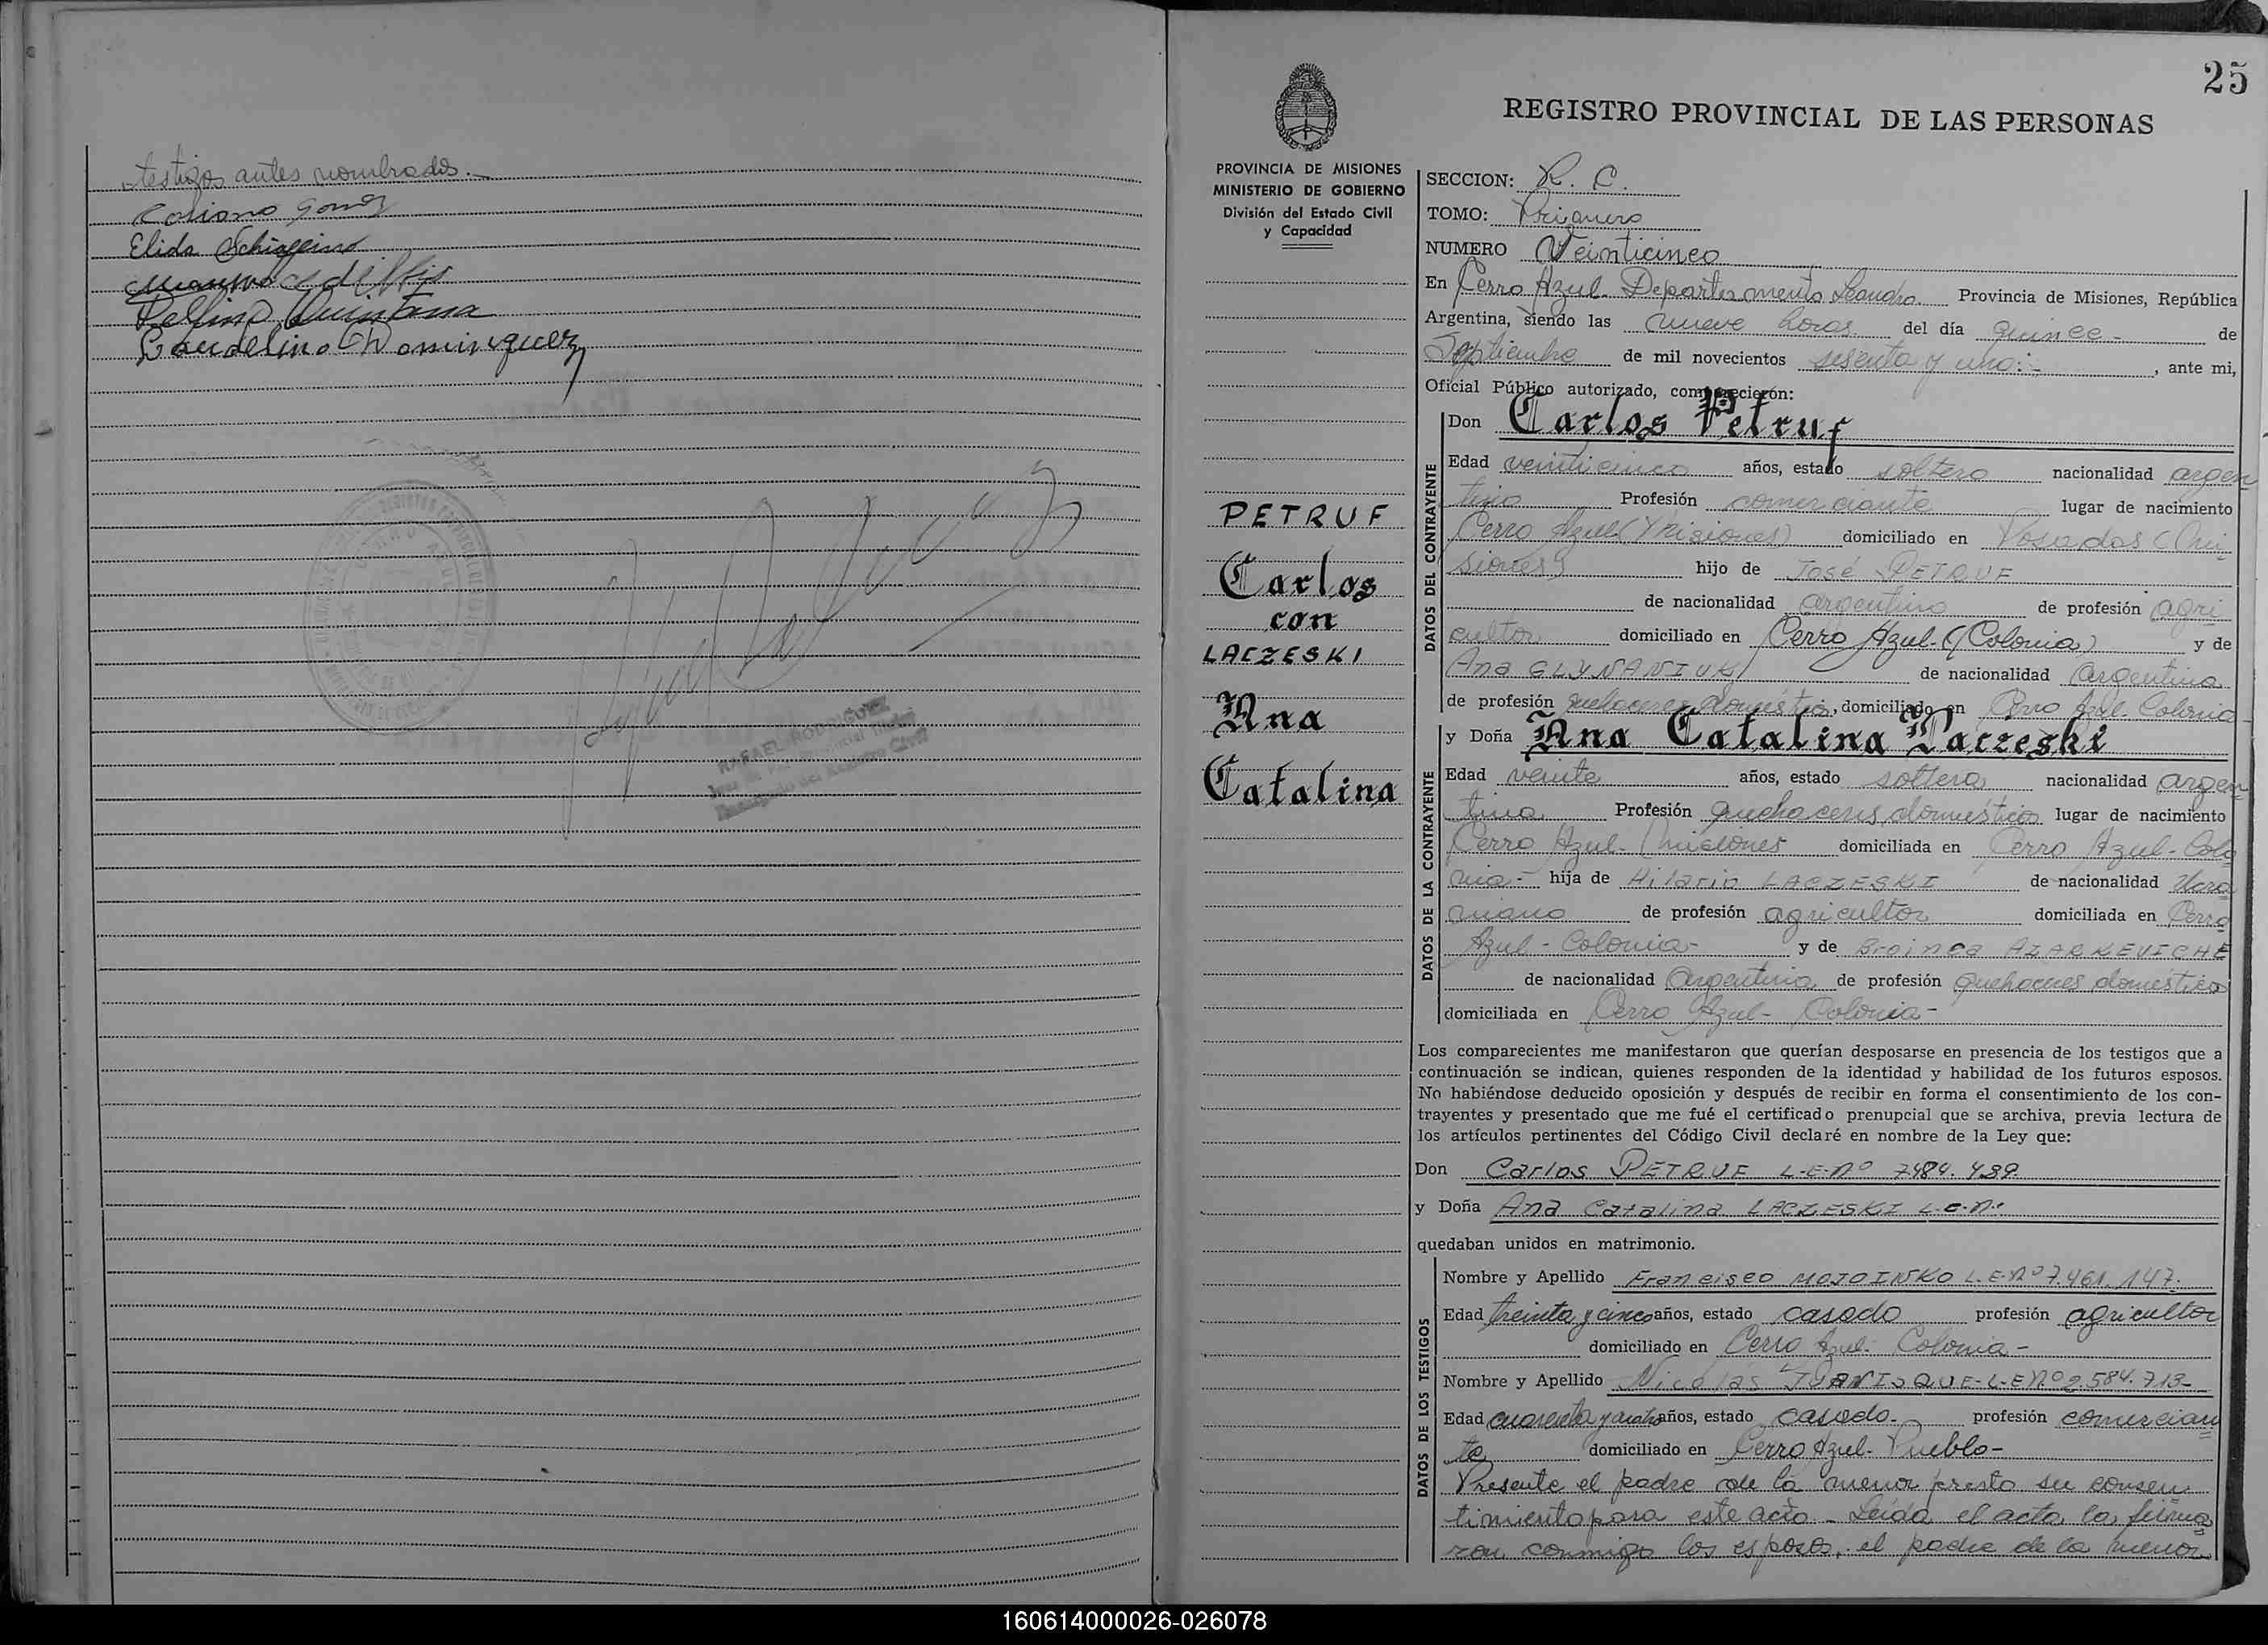 testigos antes nombrados.-
Elida Schiaffino
Delfino Quintana
Candelino Dominguez
RAFAEL RODRIGUEZ
25
REGISTRO PROVINCIAL DE LAS PERSONAS
PROVINCIA DE MISIONES
MINISTERIO DE GOBIERNO
División del Estado Civil
y Capacidad
PETRUF
Carlos
con
LACZESKI
Ana
Catalina
SECCION: R. C.
TOMO: Primero
NUMERO Veinticinco
En Cerro Azul. Departamento Leandro. Provincia de Misiones, República
Argentina, siendo las nueve horas del día quince - de
Septiembre de mil novecientos sesenta y uno:- , ante mi,
Oficial Público autorizado, comparecierón:
DATOS DEL CONTRAYENTE
Don Carlos Petruf
Edad veinticinco años, estado soltero nacionalidad argen
tino Profesión comerciante lugar de nacimiento
Cerro Azul (Misiones) domiciliado en Posadas (Mi
siones) hijo de José PETRUF
de nacionalidad argentino de profesión agri
cultor domiciliado en Cerro Azul-(Colonia) y de
Ana GLYNANIUK de nacionalidad argentina
de profesión quehaceres domésticos, domiciliado en Cerro Azul-Colonia-
DATOS DE LA CONTRAYENTE
y Doña Ana Catalina Laczeski
Edad veinte años, estado soltera nacionalidad argen
tina Profesión quehaceres domésticos lugar de nacimiento
Cerro Azul- Misiones domiciliada en Cerro Azul-Colo
nia- hija de Hilario LACZESKI de nacionalidad Ucra
niano de profesión agricultor domiciliada en Cerro
Azul-Colonia- y de Broinca AZARKEVICHE
de nacionalidad Argentina de profesión quehaceres domésticos
domiciliada en Cerro Azul- Colonia-
Los comparecientes me manifestaron que querían desposarse en presencia de los testigos que a
continuación se indican, quienes responden de la identidad y habilidad de los futuros esposos.
No habiéndose deducido oposición y después de recibir en forma el consentimiento de los con-
trayentes y presentado que me fué el certificado prenupcial que se archiva, previa lectura de
los artículos pertinentes del Código Civil declaré en nombre de la Ley que:
Don Carlos PETRUF L-E-Nº 7484.439.
y Doña Ana Catalina LACZESKI L.C.Nº
quedaban unidos en matrimonio.
DATOS DE LOS TESTIGOS
Nombre y Apellido Francisco MOJOINKO L.E-Nº 7.461.147.
Edad treinta y cinco años, estado casado profesión agricultor
domiciliado en Cerro Azul- Colonia-
Nombre y Apellido Nicolas IUANISQUE-L-E Nº 2.584.713-
Edad cuarenta y ocho años, estado casado- profesión comercian
te domiciliado en Cerro Azul- Pueblo-
Presente el padre de la menor presta su consen
timiento para este acto - Leída el acta, la firma
ron conmigo los esposos, el padre de la menor
160614000026-026078